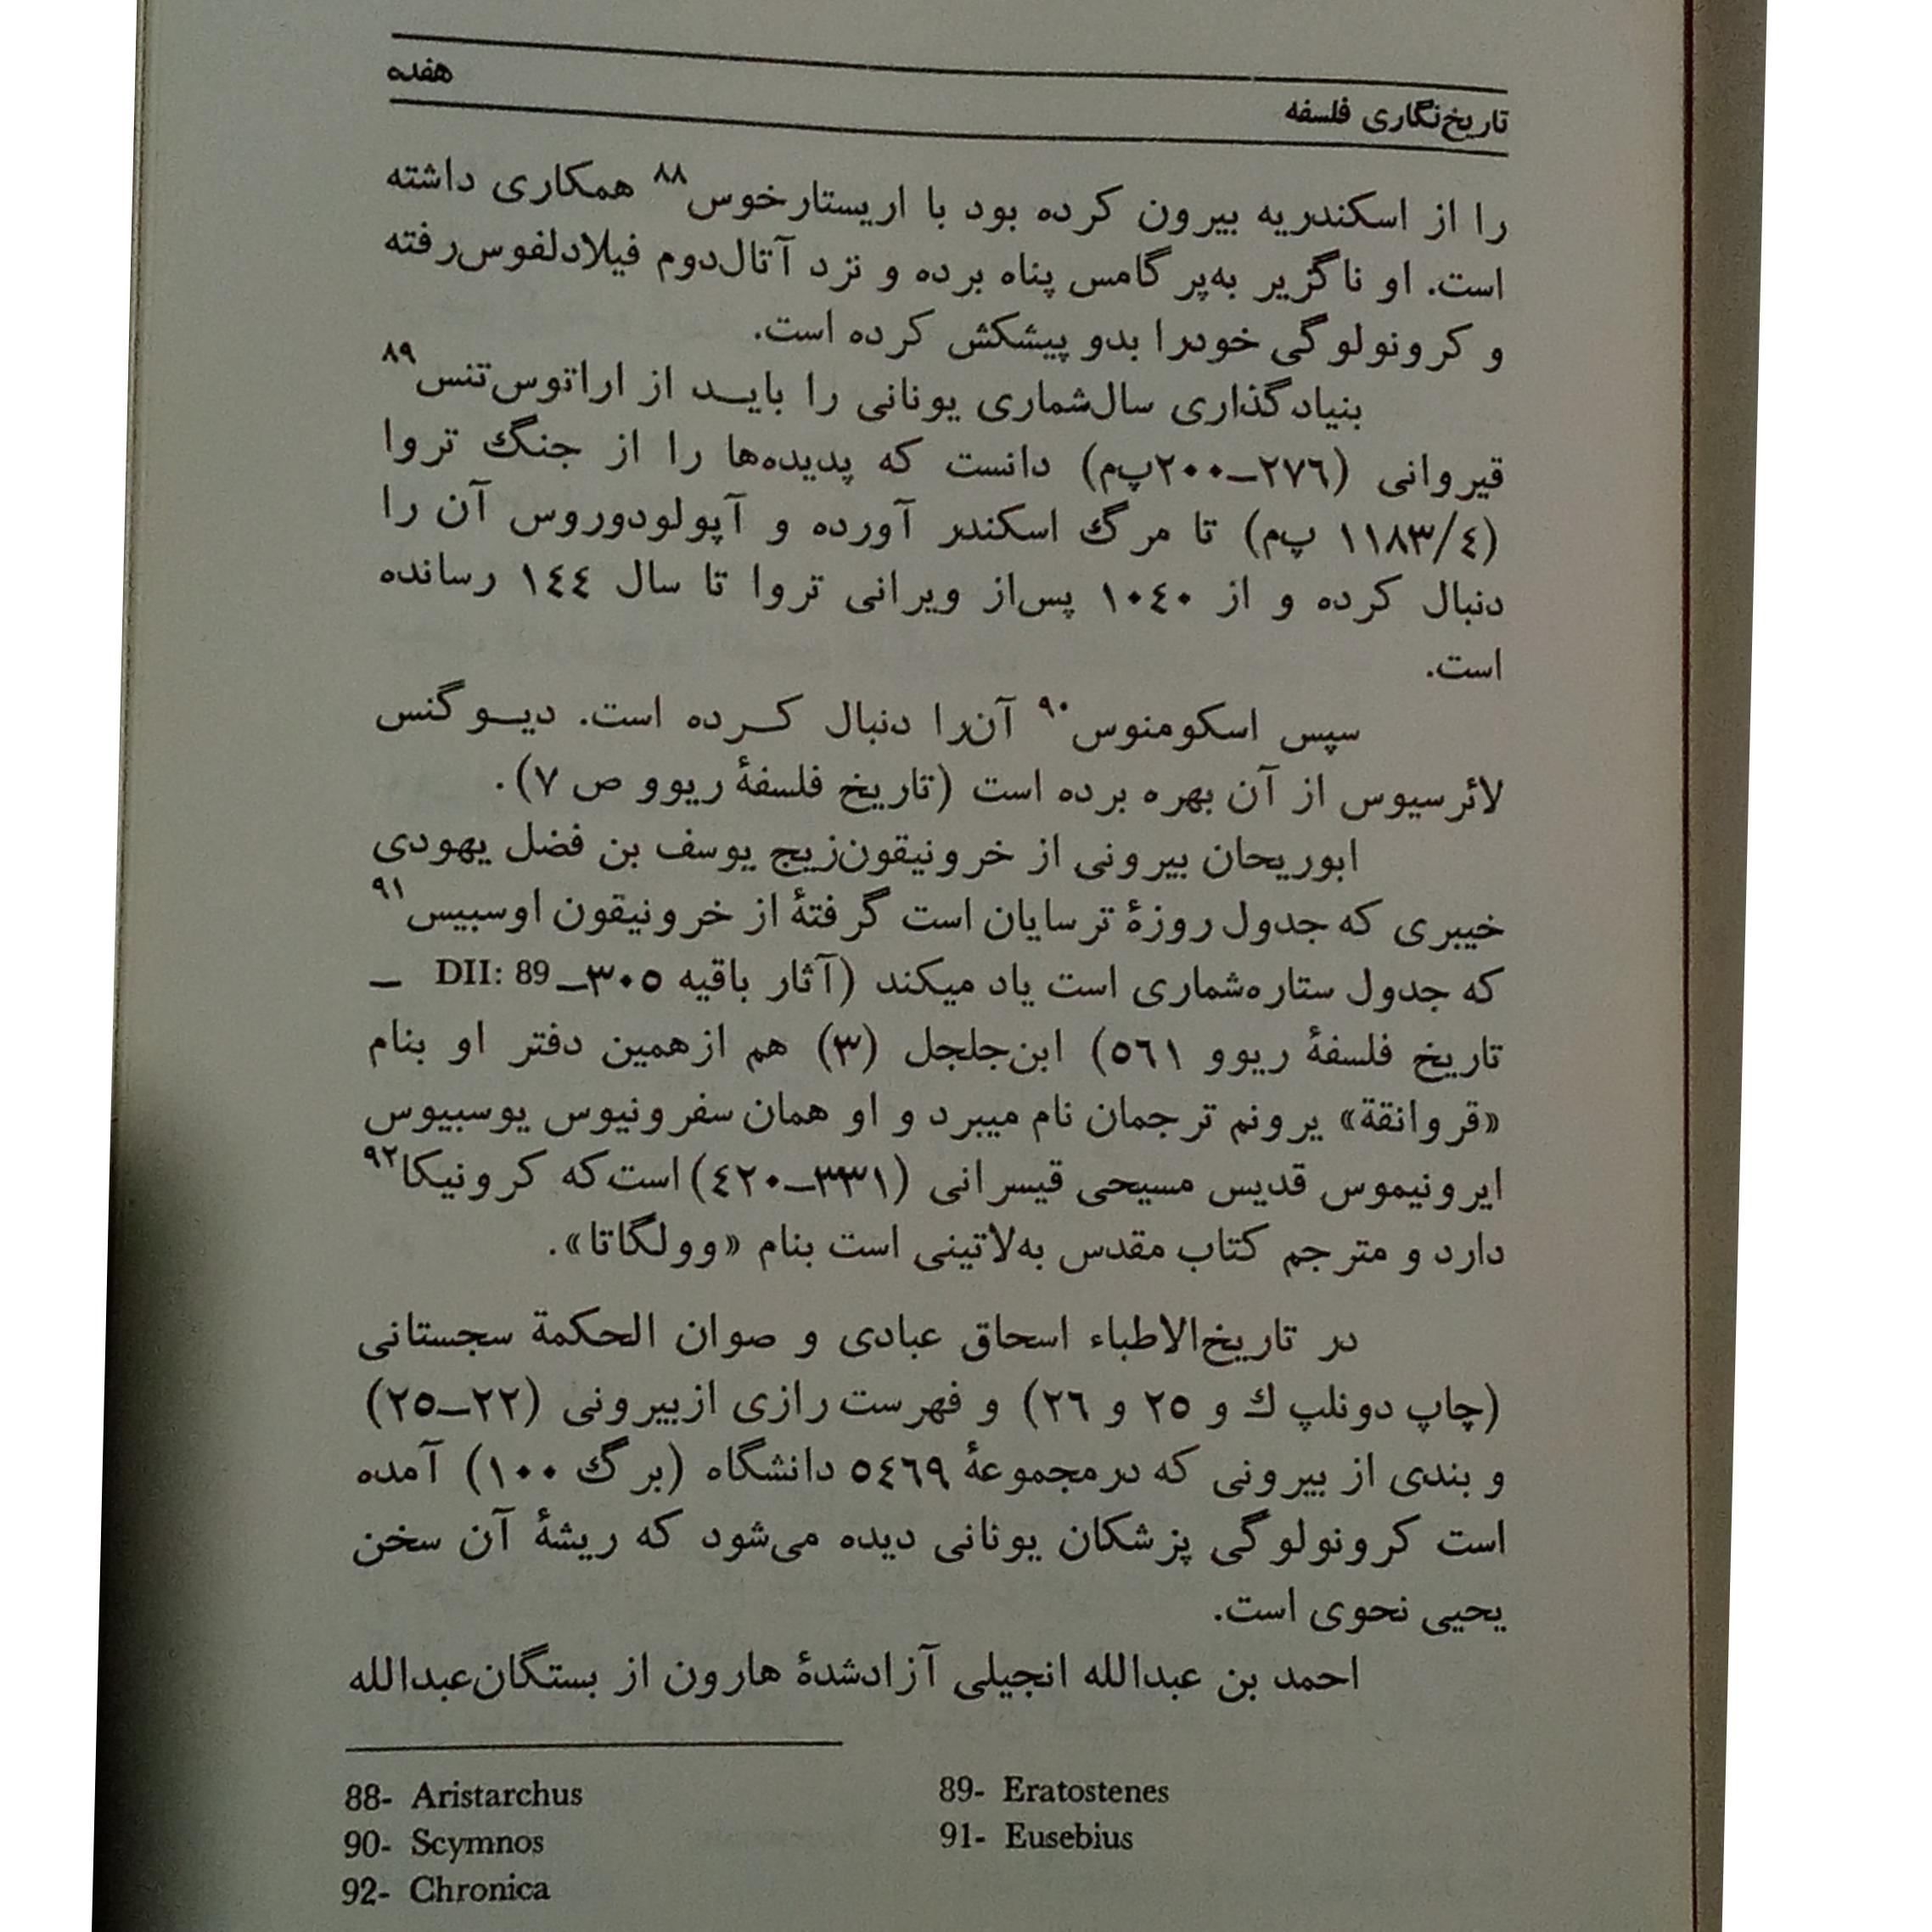 هفده
تاریخ‌نگاری فلسفه
را از اسکندریه بیرون کرده بود با اریستارخوس۸۸ همکاری داشته
است. او ناگزیر به‌پرگامس پناه برده و نزد آتال‌دوم فیلادلفوس‌رفته
و کرونولوگی خودرا بدو پیشکش کرده است.
بنیادگذاری سال‌شماری یونانی را بایـد از اراتوس‌تنس۸۹
قیروانی (۲۷۶ــ۲۰۰پ‌م) دانست که پدیده‌ها را از جنگ تروا
(۱۱۸۳/۴ پ‌م) تا مرگ اسکندر آورده و آپولودوروس آن را
دنبال کرده و از ۱۰۴۰ پس‌از ویرانی تروا تا سال ۱۴۴ رسانده
است.
سپس اسکومنوس۹۰ آن‌را دنبال کـرده است. دیـوگنس
لائرسیوس از آن بهره برده است (تاریخ فلسفهٔ ریوو ص ۷).
ابوریحان بیرونی از خرونیقون‌زیج یوسف بن فضل یهودی
خیبری که جدول روزهٔ ترسایان است گرفتهٔ از خرونیقون اوسبیس۹۱
که جدول ستاره‌شماری است یاد میکند (آثار باقیه ۳۰۵ــ DII: 89 ــ
تاریخ فلسفهٔ ریوو ۵۶۱) ابن‌جلجل (۳) هم ازهمین دفتر او بنام
«قروانقة» یرونم ترجمان نام میبرد و او همان سفرونیوس یوسبیوس
ایرونیموس قدیس مسیحی قیسرانی (۳۳۱ــ۴۲۰) است‌که کرونیکا۹۲
دارد و مترجم کتاب مقدس به‌لاتینی است بنام «وولگاتا».
در تاریخ‌الاطباء اسحاق عبادی و صوان الحکمة سجستانی
(چاپ دونلپ ك و ۲۵ و ۲۶) و فهرست رازی ازبیرونی (۲۲ــ۲۵)
و بندی از بیرونی که درمجموعهٔ ۵۴۶۹ دانشگاه (برگ ۱۰۰) آمده
است کرونولوگی پزشکان یونانی دیده می‌شود که ریشهٔ آن سخن
یحیی نحوی است.
احمد بن عبدالله انجیلی آزادشدهٔ هارون از بستگان‌عبدالله
88- Aristarchus
89- Eratostenes
90- Scymnos
91- Eusebius
92- Chronica